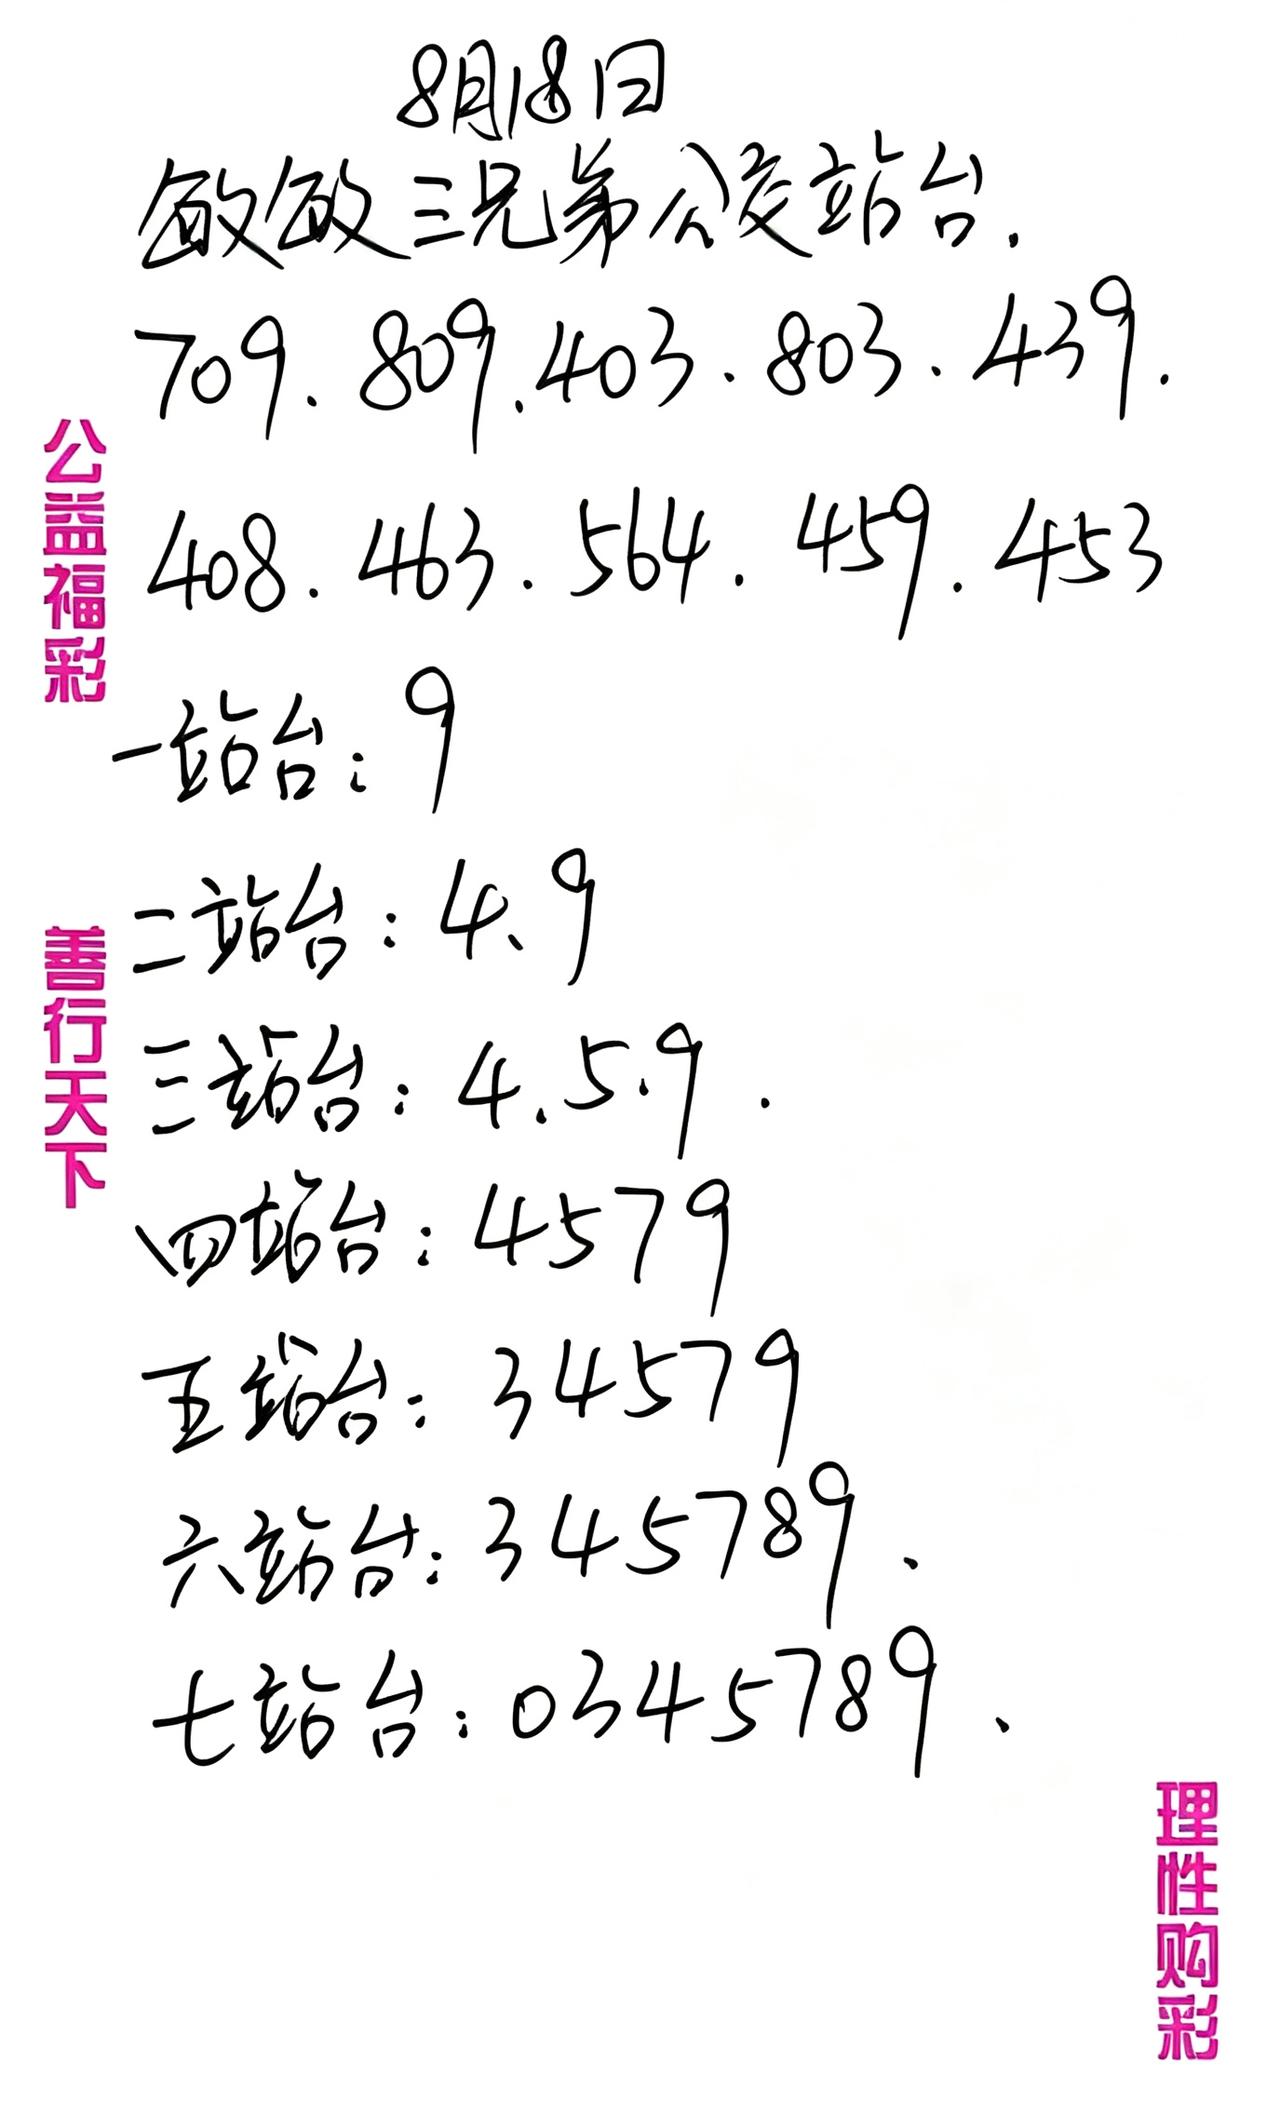 8月18日
敏敏三兄弟公交站台.
709.809.403.803.439.
408.463.564.459.453
一站台:9
二站台:4、9
三站台:4.5.9.
四站台:4579
五站台:34579
六站台:345789、
七站台:0345789、
公益福彩
善行天下
理性购彩